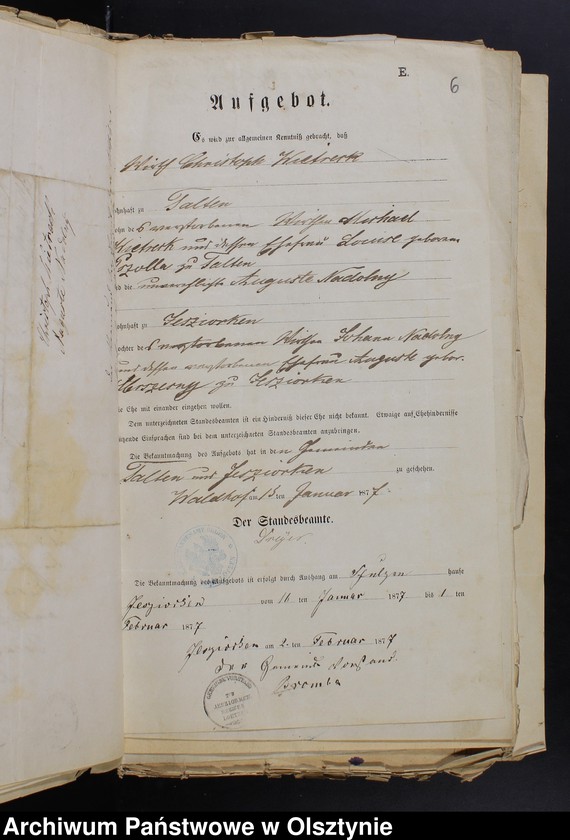 E.
6
Aufgebot.
Es wird zur allgemeinen Kenntniß gebracht, daß
Wirth Christoph Kietreck
ohnhaft zu Talten
ohn des verstorbenen Wirthen Michael
Kietreck und dessen Ehefrau Louise geborene
zu Talten
nd die unverehelichte Auguste Nadolny
ohnhaft zu Jesziorken
ochter des verstorbenen Wirthen Johann Nadolny
und dessen verstorbenen Ehefrau Auguste gebor.
zu Jesziorken
ie Ehe mit einander eingehen wollen.
Dem unterzeichneten Standesbeamten ist ein Hinderniß dieser Ehe nicht bekannt. Etwaige auf Ehehindernisse
tzende Einsprachen sind bei dem unterzeichneten Standesbeamten anzubringen.
Die Bekanntmachung des Aufgebots hat in den Gemeinden
Talten und Jesziorken zu geschehen.
Waldhof am ten Januar 1877.
Der Standesbeamte.
Dreyer.
Die Bekanntmachung des Aufgebots ist erfolgt durch Aushang am Schulzen hause
Jesziorken vom ten Januar 1877 bis 1 ten
Februar 1877
Jesziorken am 2. ten Februar 1877
Der Gemeinde Vorstand
Bromba
Archiwum Państwowe w Olsztynie